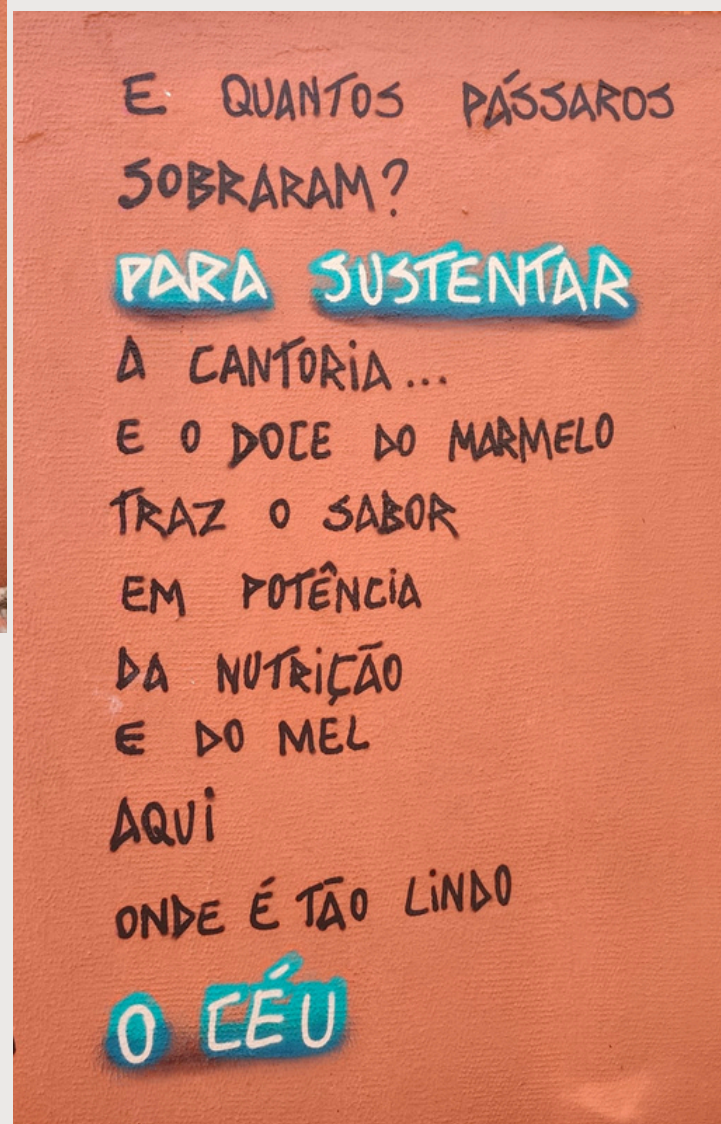 E QUANTOS PÁSSAROS
SOBRARAM?
PARA SUSTENTAR
A CANTORIA...
E O DOCE DO MARMELO
TRAZ O SABOR
EM POTÊNCIA
DA NUTRIÇÃO
E DO MEL
AQUI
ONDE É TÃO LINDO
O CÉU